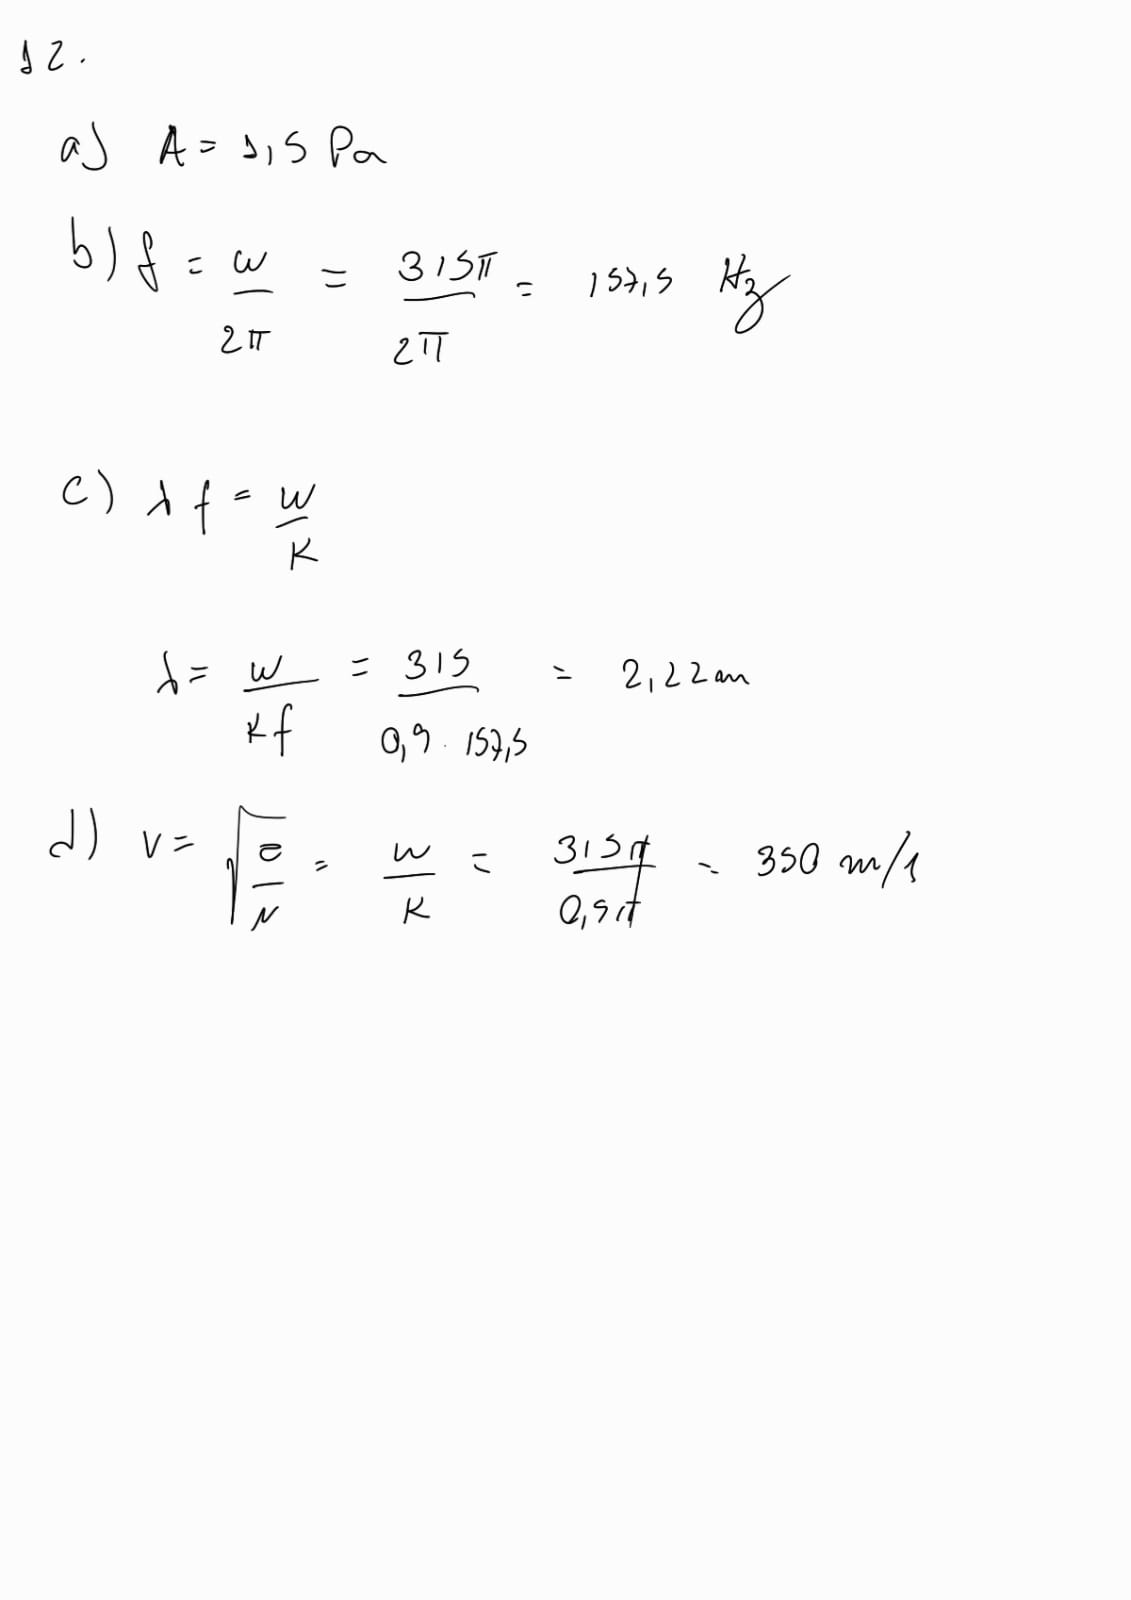 12.
a) A = 1,5 Pa
b) f = w/2π = 315π/2π = 157,5 Hz
c) λ f = w/K
λ = w/Kf = 315/0,9 · 157,5 = 2,22 m
d) v = √ = w/K = 315π/0,9π = 350 m/s